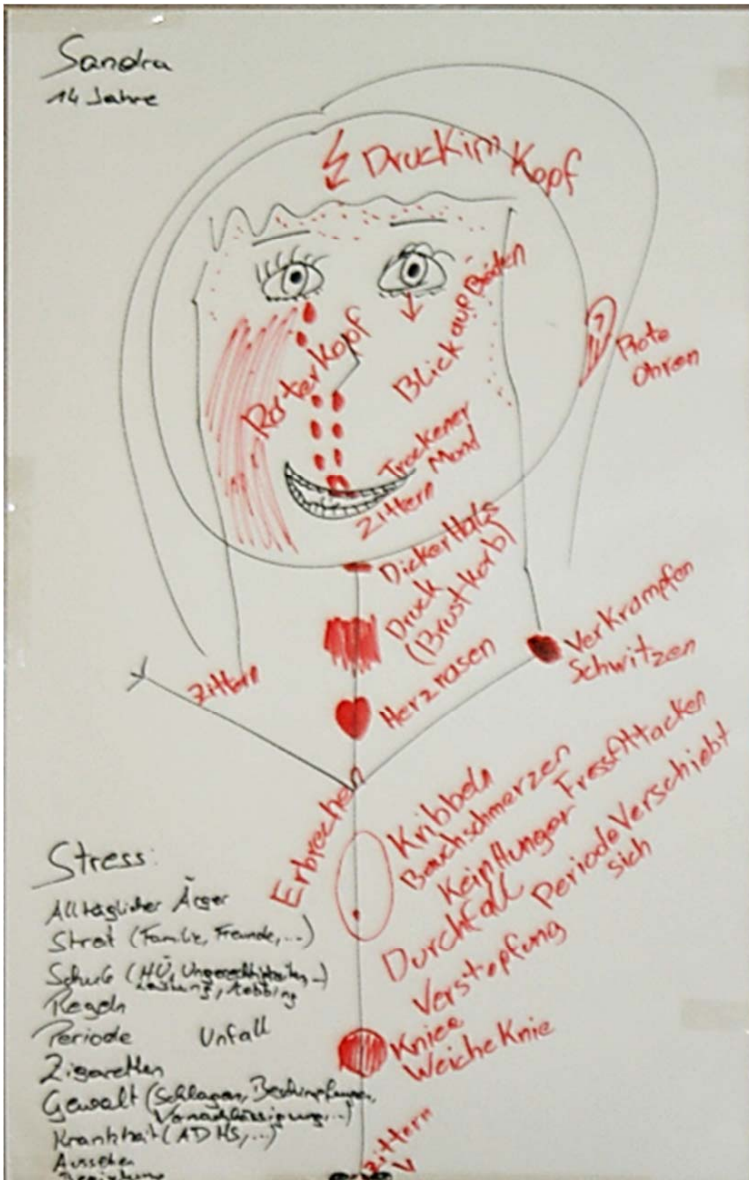 Sandra
14 Jahre
Druck im Kopf
Roter Kopf
Blick auf Boden
Rote
Ohren
Trockener
Mund
Zittern
Dicker Hals
Druck
(Brustkorb)
Verkrampfen
Schwitzen
Zittern
Herzrasen
Erbrechen
Kribbeln
Bauchschmerzen
Kein Hunger Fressattacken
Durchfall
Periode Verschiebt
sich
Verstopfung
Kniee
Weiche Knie
Zittern
Stress:
Alltäglicher Ärger
Streit (Familie, Freunde,...)
Schule (HÜ, Ungerechtigkeiten,...)
Leistung, Mobbing
Regeln
Periode Unfall
Zigaretten
Gewalt (Schlagen, Beschimpfungen,
Vernachlässigung,...)
Krankheit (ADHS,...)
Aussehen